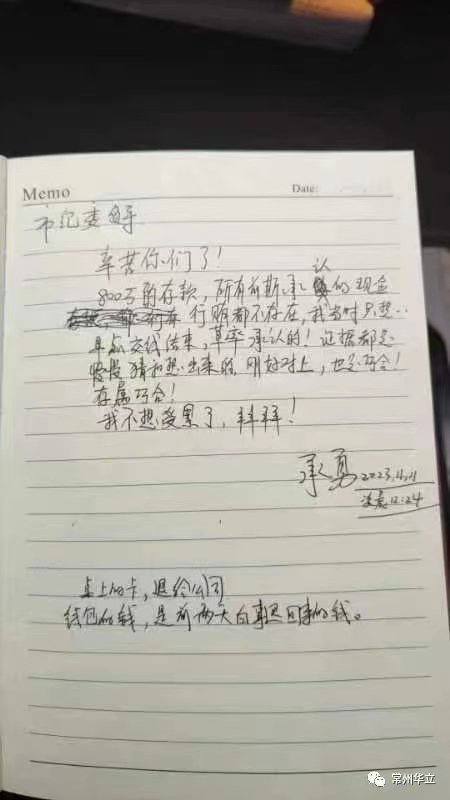 Memo
Date:
市纪委领导
辛苦你们了！
800万的存款，所有前期承认的现金
行贿都不存在，我当时只想
早点交待结束，草率承认的！证据都是
慢慢猜和想出来的，刚好对上，也是巧合！
存属巧合！
我不想受累了，拜拜！
承勇 2023.4.11
凌晨12:24
桌上的卡，退给公司
钱包的钱，是前两天向事退回来的钱。
常州华立